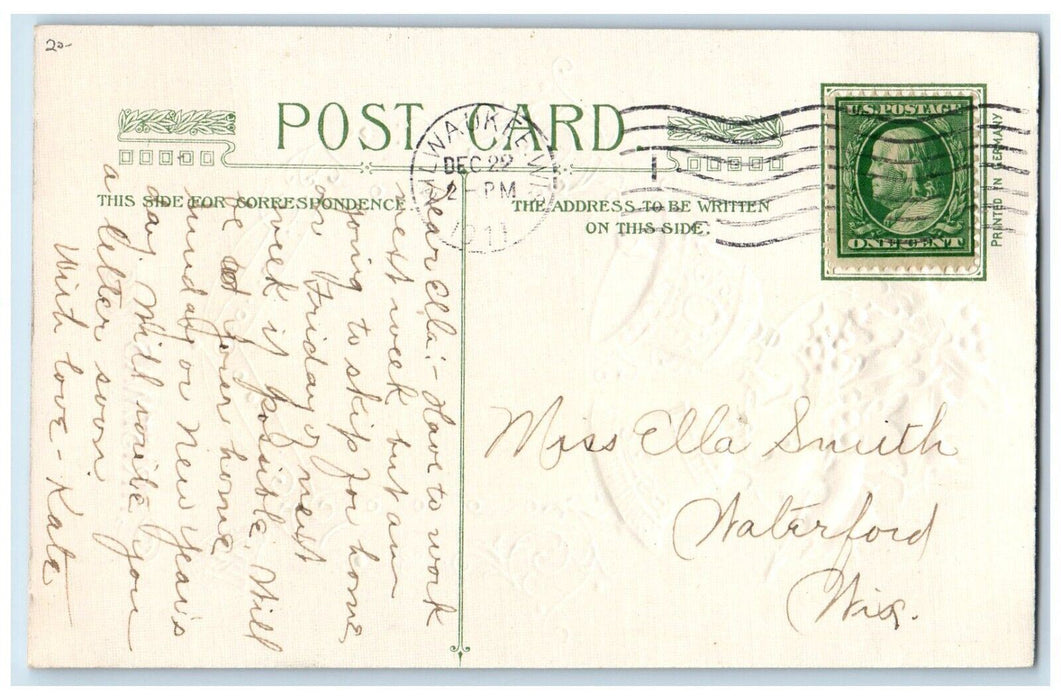 20-
POST CARD
MILWAUKEE, WIS.
DEC 22
2-PM
1911
U.S. POSTAGE
ONE CENT
PRINTED IN GERMANY
THIS SIDE FOR CORRESPONDENCE
THE ADDRESS TO BE WRITTEN
ON THIS SIDE.
Dear Ella:- Have to work
next week but am
going to skip for home,
on Friday of next
week if possible. Will
be at your home
Sunday or New Year's
day. Will write you
a letter soon.
With love - Kate
Miss Ella Smith
Waterford
Wis.